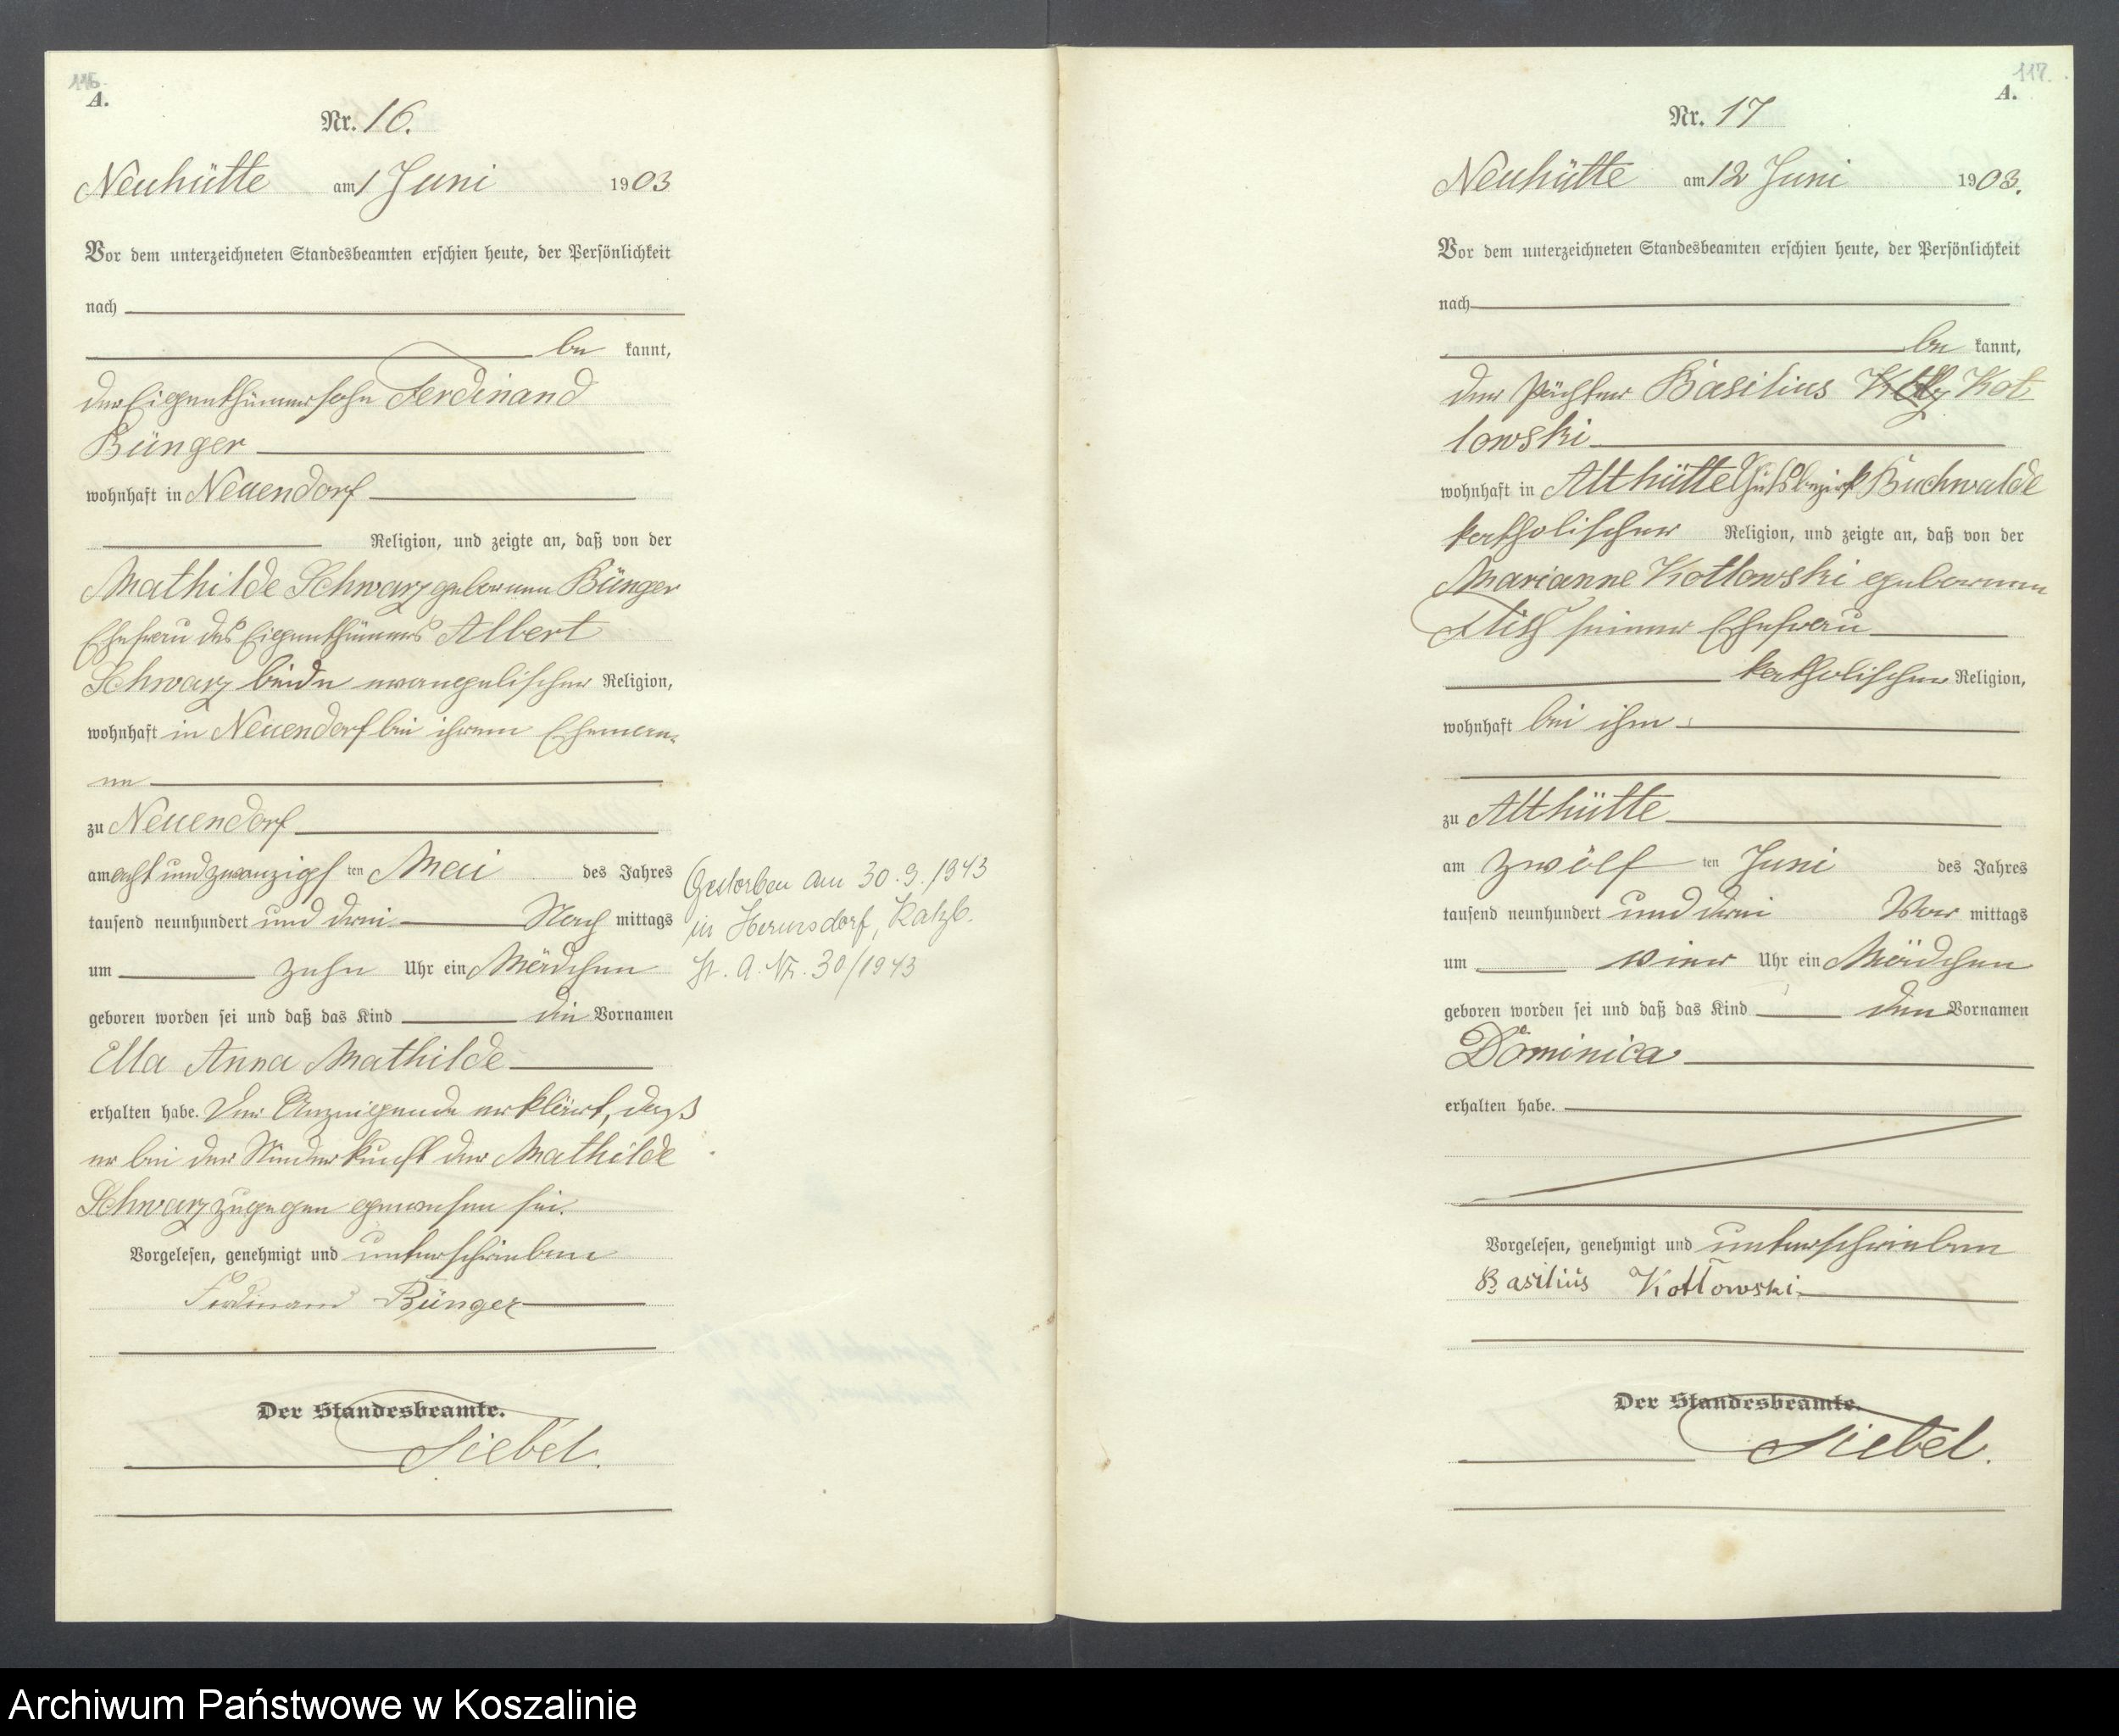 116.
A.
Nr. 16.
Neuhütte am 1 Juni 1903
Vor dem unterzeichneten Standesbeamten erschien heute, der Persönlichkeit
nach
be kannt,
der Eigenthümersohn Ferdinand
Bünger
wohnhaft in Neuendorf
Religion, und zeigte an, daß von der
Mathilde Schwarz geborenen Bünger
Ehefrau des Eigenthümers Albert
Schwarz beide evangelischer Religion,
wohnhaft in Neuendorf bei ihrem Eheman-
ne
zu Neuendorf
am acht und zwanzigs ten Mai des Jahres
tausend neunhundert und drei Nach mittags
um zehn Uhr ein Mädchen
geboren worden sei und daß das Kind die Vornamen
Ella Anna Mathilde
erhalten habe. Der Anzeigende erklärt, daß
er bei der Niederkunft der Mathilde
Schwarz zugegen gewesen sei.
Vorgelesen, genehmigt und unterschrieben
Ferdinand Bünger
Der Standesbeamte.
Siebel.
Gestorben am 30.9.1943
in Hermsdorf, Katzb.
St. A. Nr. 30/1943
117.
A.
Nr. 17
Neuhütte am 12 Juni 1903.
Vor dem unterzeichneten Standesbeamten erschien heute, der Persönlichkeit
nach
be kannt,
der Pächter Basilius Kot
lowski
wohnhaft in Althütte Gutsbezirk Buchwalde
katholischer Religion, und zeigte an, daß von der
Marianne Kotlowski geborenen
seiner Ehefrau
katholischer Religion,
wohnhaft bei ihm
zu Althütte
am zwölf ten Juni des Jahres
tausend neunhundert und drei Vor mittags
um vier Uhr ein Mädchen
geboren worden sei und daß das Kind den Vornamen
Dominica
erhalten habe.
Vorgelesen, genehmigt und unterschrieben
Basilius Kotłowski
Der Standesbeamte.
Siebel.
Archiwum Państwowe w Koszalinie